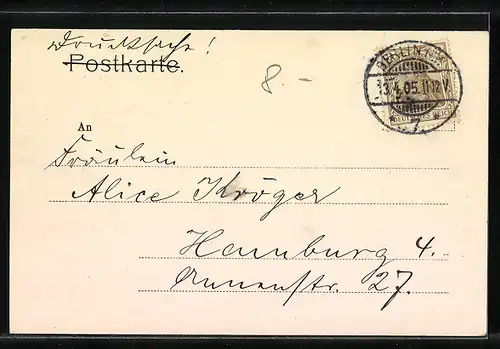 Drucksache!
Postkarte.
8.-
BERLIN
13.4.05. 11-12 V.
DEUTSCHES REICH
7.
An
Fräulein
Alice Kröger
Hamburg 4.
Annenstr. 27.